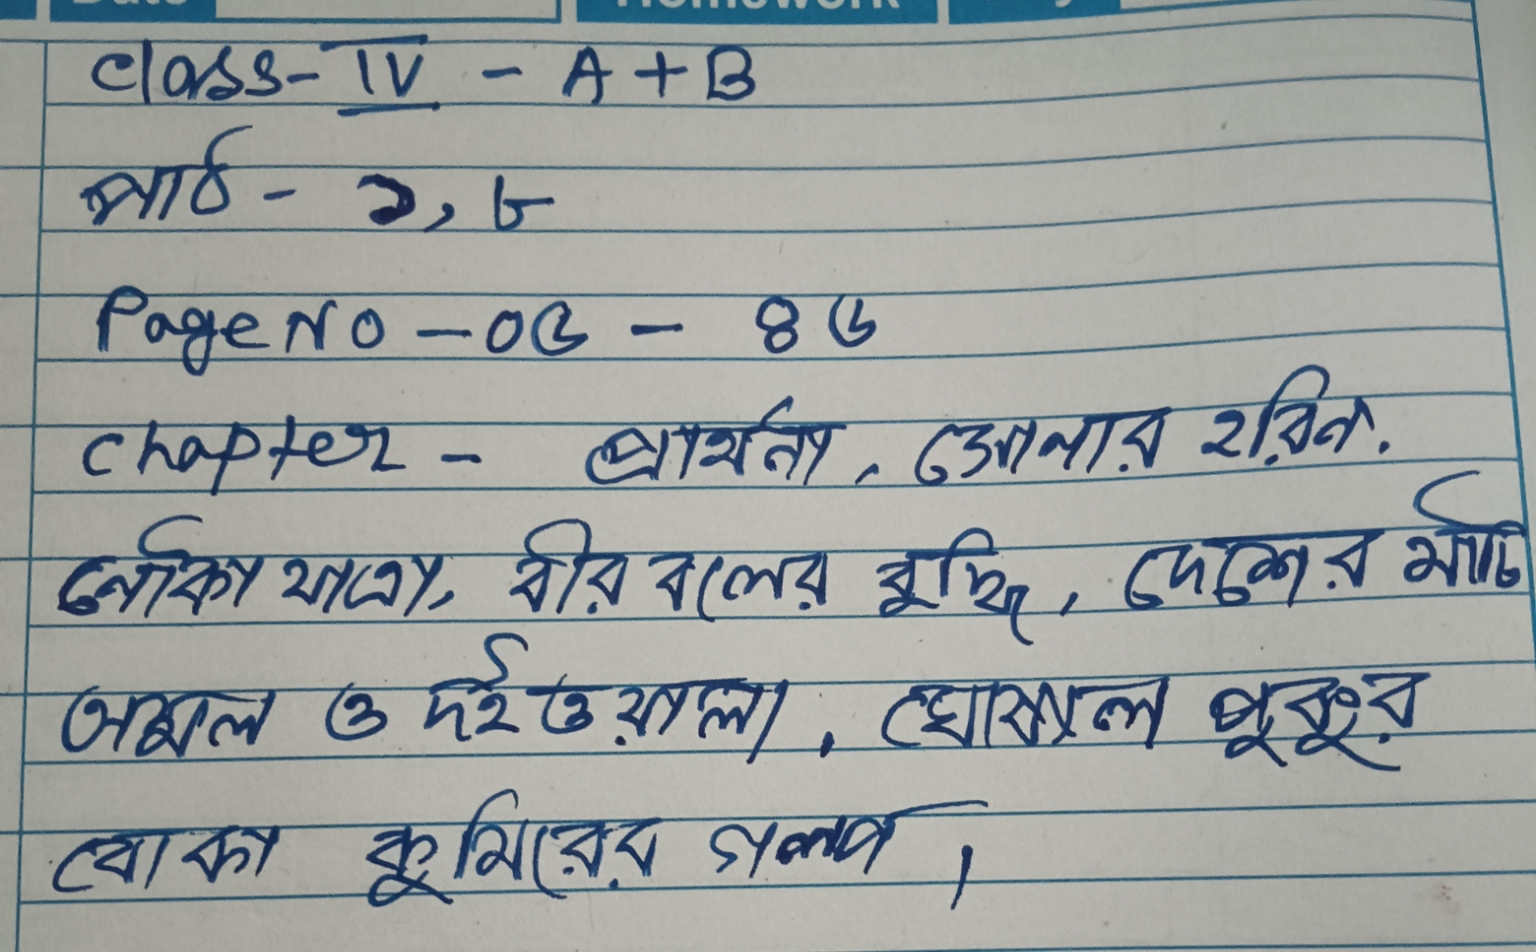 Date Homework
Class - IV - A + B
পাঠ - ১, ৮
Page No - ০৫ - ৪৬
Chapter - প্রার্থনা, সোনার হরিন,
নৌকা যাত্রা, বীরবলের বুদ্ধি, দেশের মাটি
অমল ও দইওয়ালা, ঘোষাল পুকুর
বোকা কুমিরের গল্প,